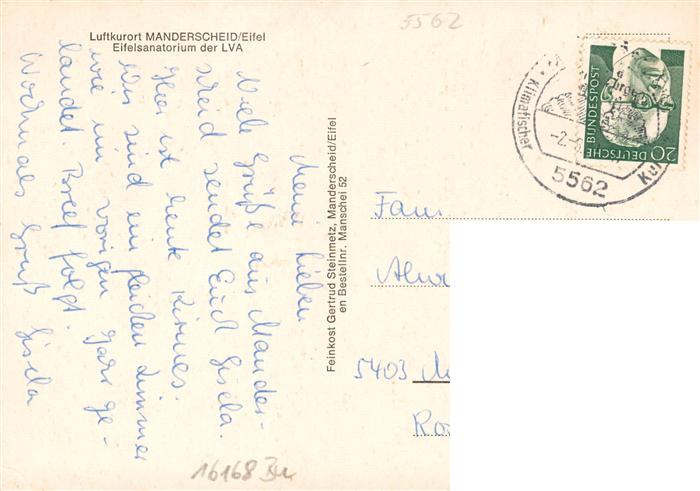 5562
Luftkurort MANDERSCHEID/Eifel
Eifelsanatorium der LVA
Meine Lieben
Viele Grüße aus Mander-
scheid sendet Euch Gisela.
Hier ist heute Kirmes.
Wir sind im gleichen Zimmer
wie im vorigen Jahr ge-
landet. Brief folgt.
Nochmals Gruß Gisela
Feinkost Gertrud Steinmetz, Manderscheid/Eifel
en Bestellnr. Manschei 52
20 DEUTSCHE
BUNDESPOST
Klimatischer
Kur
-2.-
5562
Fam
5403
16168